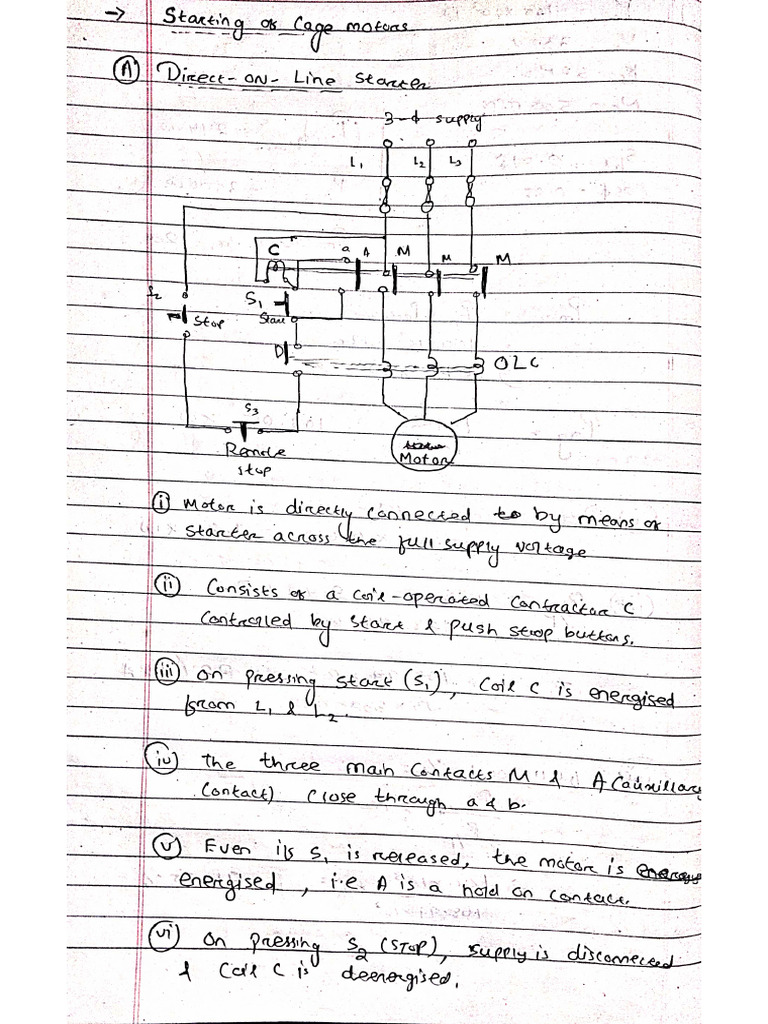 → Starting of Cage motors
(A) Direct-on-Line Starter
3-ϕ supply
L1 L2 L3
C a A M M M
S2 S1
Stop Start
D OLC
S3
Remote
stop
Motor
(i) Motor is directly connected to by means of
starter across the full supply voltage
(ii) Consists of a coil-operated contractor C
controlled by start & push stop buttons.
(iii) On pressing start (S1), coil C is energised
from L1 & L2.
(iv) The three main contacts M & A (auxillary
contact) close through a & b.
(v) Even if S1 is released, the motor is
energised, i.e A is a hold on contact.
(vi) On pressing S2 (STOP), supply is disconnected
& coil C is deenergised.